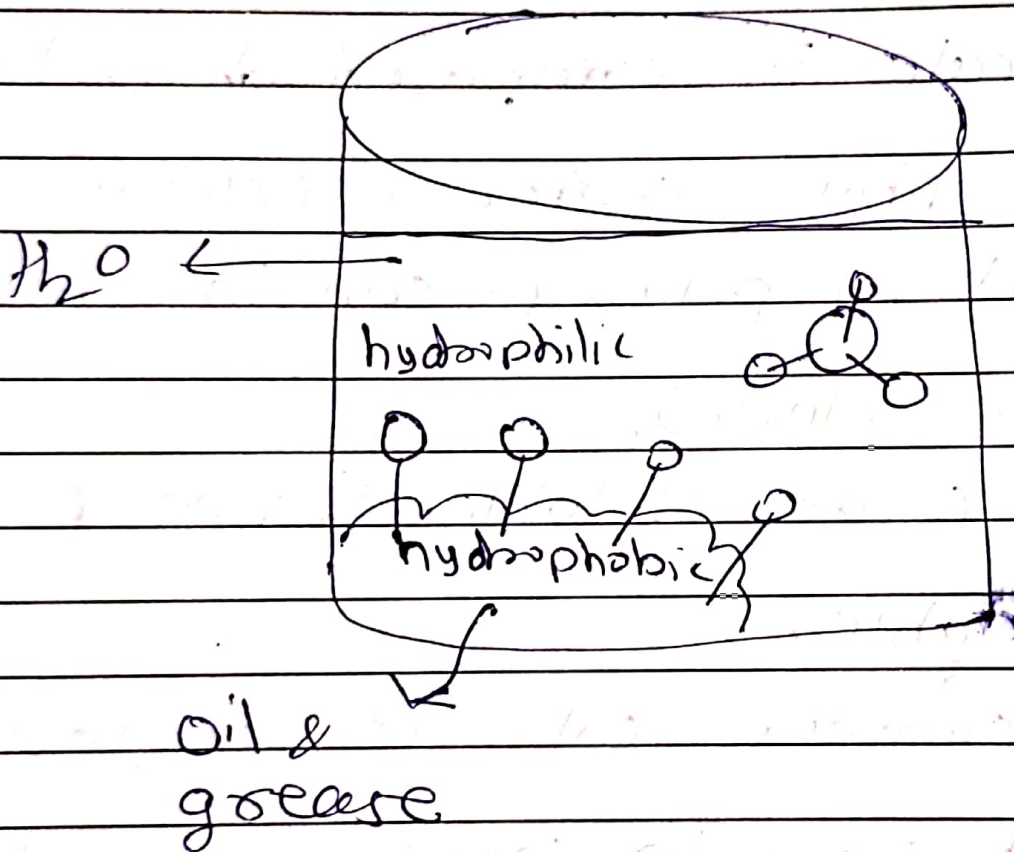 H₂O
hydrophilic
hydrophobic
Oil &
grease